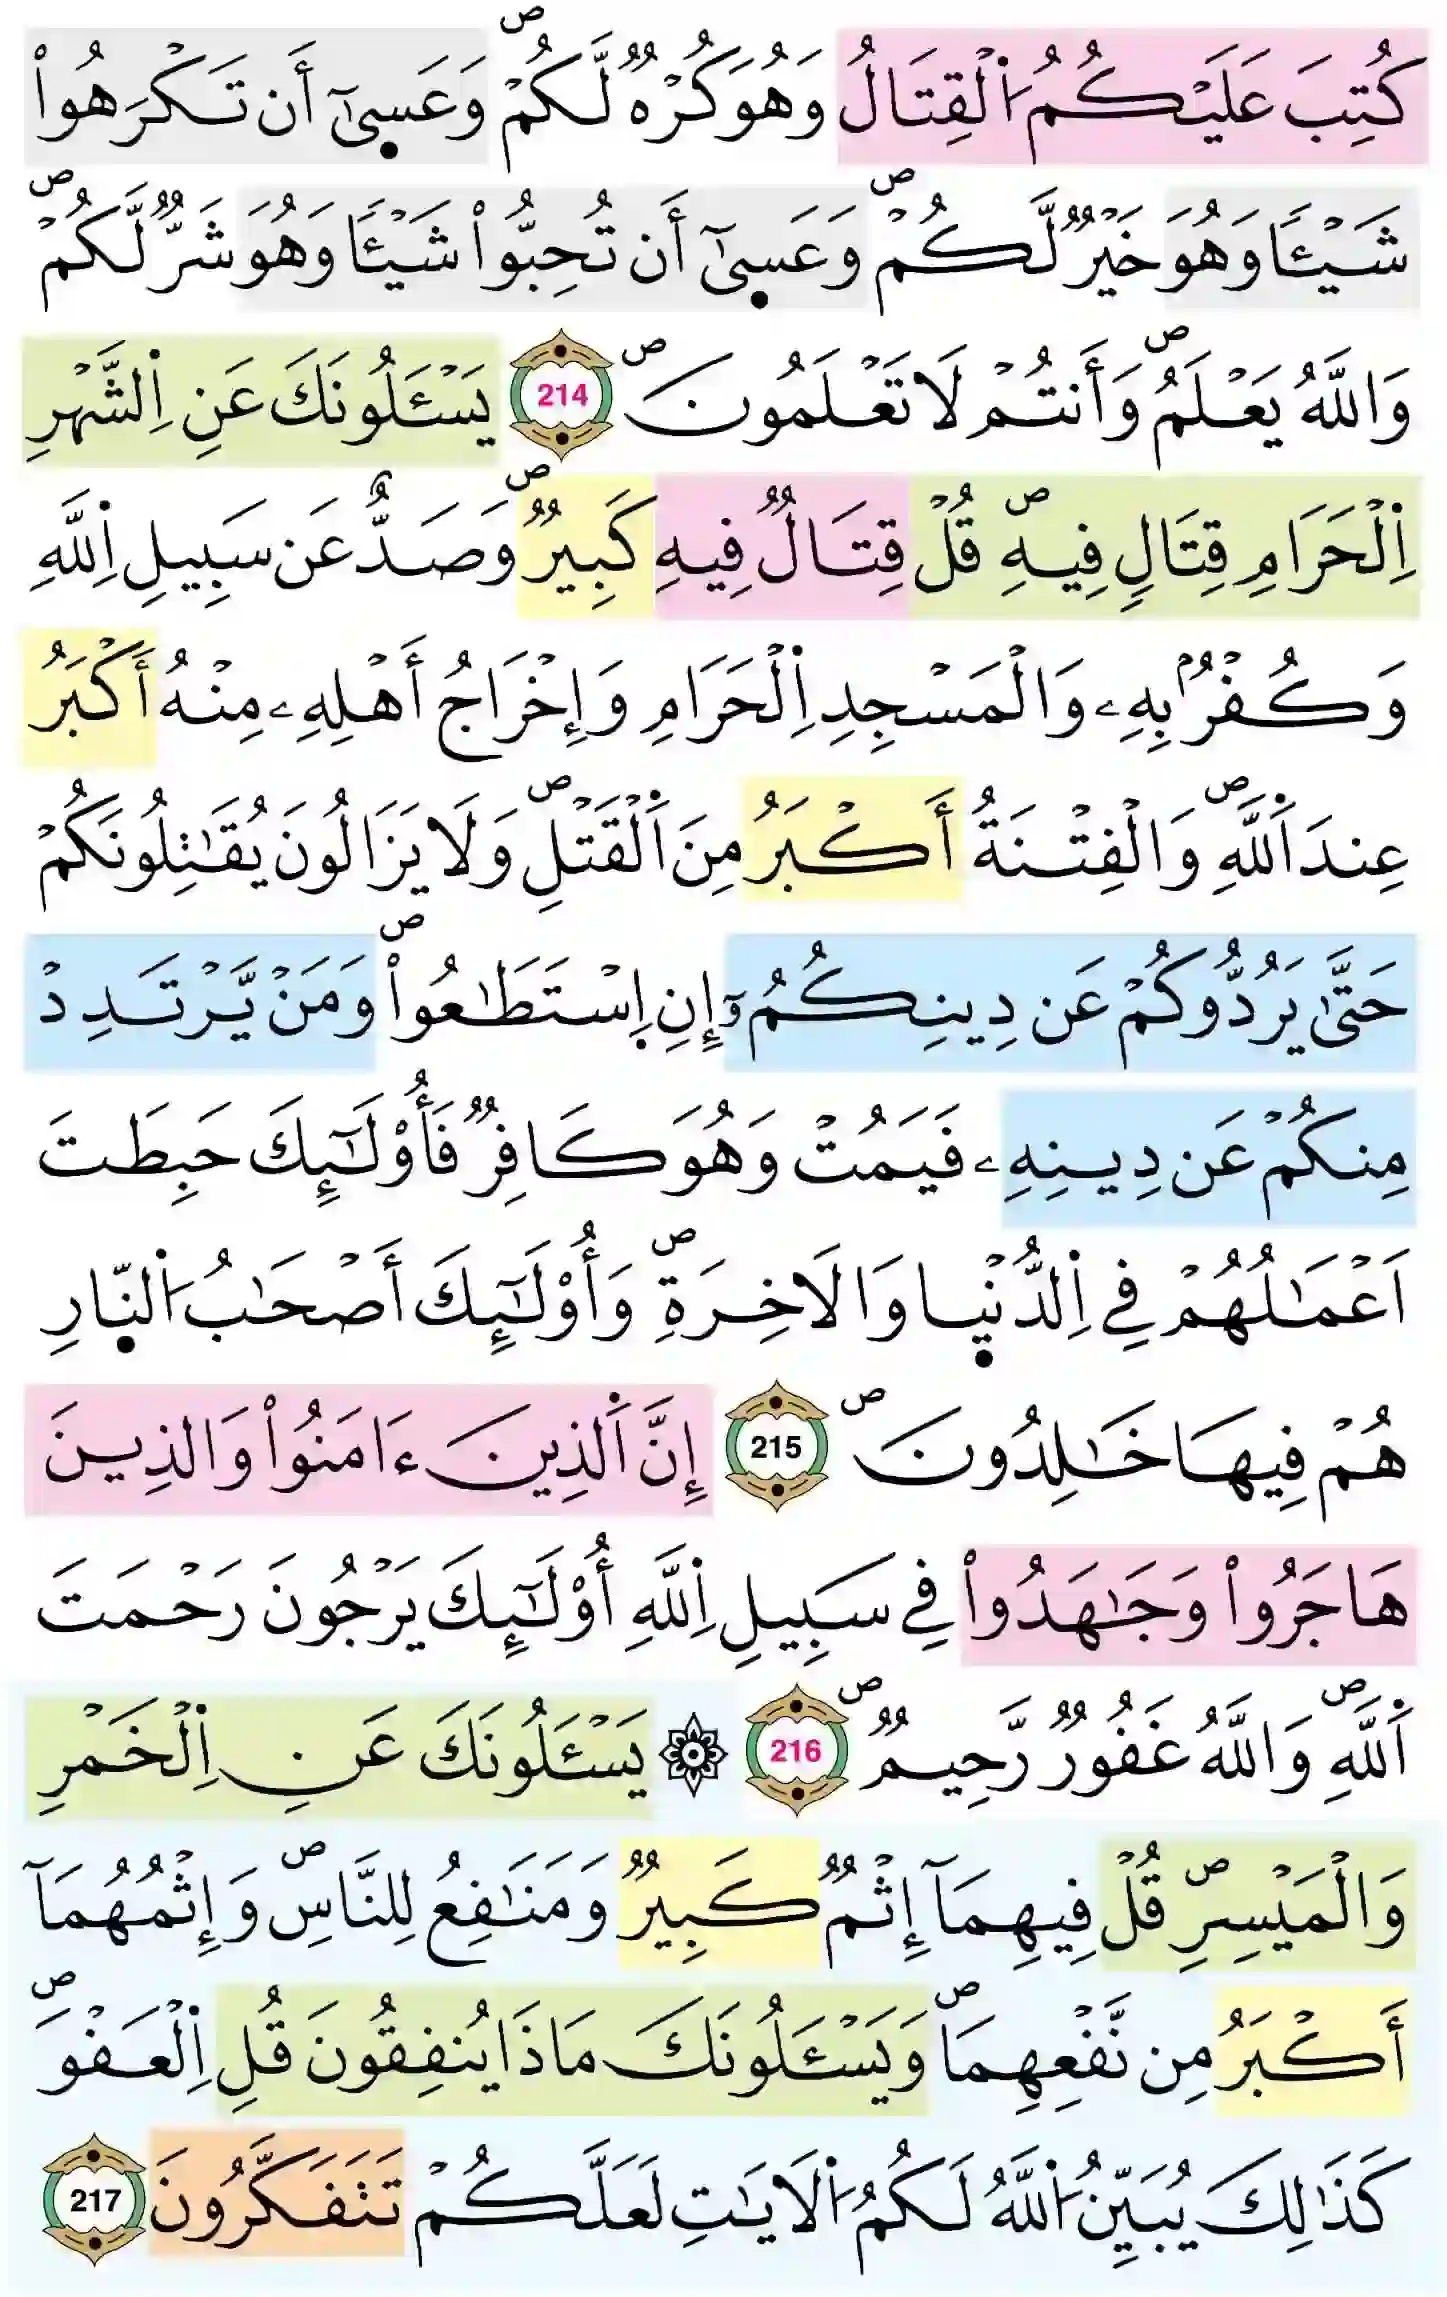 كُتِبَ عَلَيْكُمُ اُ۬لْقِتَالُ وَهُوَ كُرْهٞ لَّكُمْۖ وَعَسِىٰٓ أَن تَكْرَهُواْ
شَيْـٔاٗ وَهُوَ خَيْرٞ لَّكُمْۖ وَعَسِىٰٓ أَن تُحِبُّواْ شَيْـٔاٗ وَهُوَ شَرّٞ لَّكُمْۖ
وَاللَّهُ يَعْلَمُۖ وَأَنتُمْ لَا تَعْلَمُونَۖ 214 يَسْـَٔلُونَكَ عَنِ اِ۬لشَّهْرِ
اِ۬لْحَرَامِ قِتَالٖ فِيهِۖ قُلْ قِتَالٞ فِيهِ كَبِيرٞۖ وَصَدٌّ عَن سَبِيلِ اِ۬للَّهِ
وَكُفْرُۢ بِهِۦ وَالْمَسْجِدِ اِ۬لْحَرَامِ وَإِخْرَاجُ أَهْلِهِۦ مِنْهُ أَكْبَرُ
عِندَ اَ۬للَّهِۖ وَالْفِتْنَةُ أَكْبَرُ مِنَ اَ۬لْقَتْلِۖ وَلَا يَزَالُونَ يُقَٰتِلُونَكُمْ
حَتَّىٰ يَرُدُّوكُمْ عَن دِينِكُمُۥٓ إِنِ اِ۪سْتَطَٰعُواْۖ وَمَنْ يَّرْتَدِدْ
مِنكُمْ عَن دِينِهِۦ فَيَمُتْ وَهُوَ كَافِرٞ فَأُوْلَٰٓئِكَ حَبِطَتَ
اَعْمَٰلُهُمْ فِے اِ۬لدُّنْي۪ا وَالَاخِرَةِۖ وَأُوْلَٰٓئِكَ أَصْحَٰبُ اُ۬لنّ۪ارِ
هُمْ فِيهَا خَٰلِدُونَۖ 215 إِنَّ اَ۬لذِينَ ءَامَنُواْ وَالذِينَ
هَاجَرُواْ وَجَٰهَدُواْ فِے سَبِيلِ اِ۬للَّهِ أُوْلَٰٓئِكَ يَرْجُونَ رَحْمَتَ
اَ۬للَّهِۖ وَاللَّهُ غَفُورٞ رَّحِيمٞۖ 216 ۞ يَسْـَٔلُونَكَ عَنِ اِ۬لْخَمْرِ
وَالْمَيْسِرِۖ قُلْ فِيهِمَآ إِثْمٞ كَبِيرٞ وَمَنَٰفِعُ لِلنَّاسِۖ وَإِثْمُهُمَآ
أَكْبَرُ مِن نَّفْعِهِمَاۖ وَيَسْـَٔلُونَكَ مَاذَا يُنفِقُونَ قُلِ اِ۬لْعَفْوَۖ
كَذَٰلِكَ يُبَيِّنُ اُ۬للَّهُ لَكُمُ اُ۬لَايَٰتِ لَعَلَّكُمْ تَتَفَكَّرُونَ 217